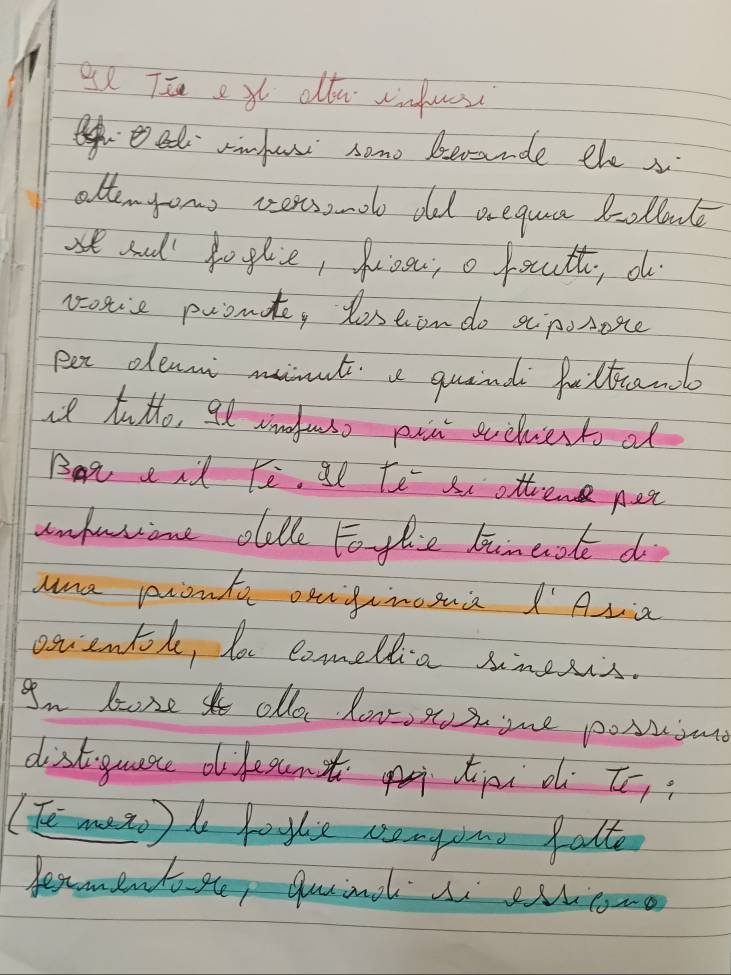 Il Tè e gli altri infusi
infusi sono bevande che si
ottengono versando del acqua bollente
sul' foglie, fiori, o frutti, di
varie piante, lasciando riposare
per alcuni minuti e quindi filtrando
il tutto. Il infuso più richiesto al
Bar e il Tè. Il Tè si ottiene per
infusione delle Foglie trinciate di
una pianta originaria l'Asia
orientale, la camellia sinesis.
In base alla lavorazione possiamo
distiguere diferenti tipi di Tè, :
(Tè nero) le foglie vengono fatte
fermentare, quindi si essicono